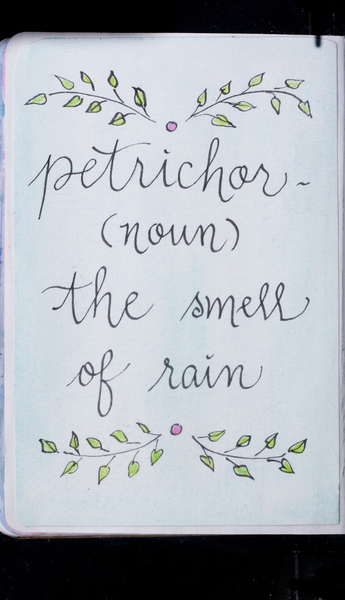 petrichor~
(noun)
the smell
of rain